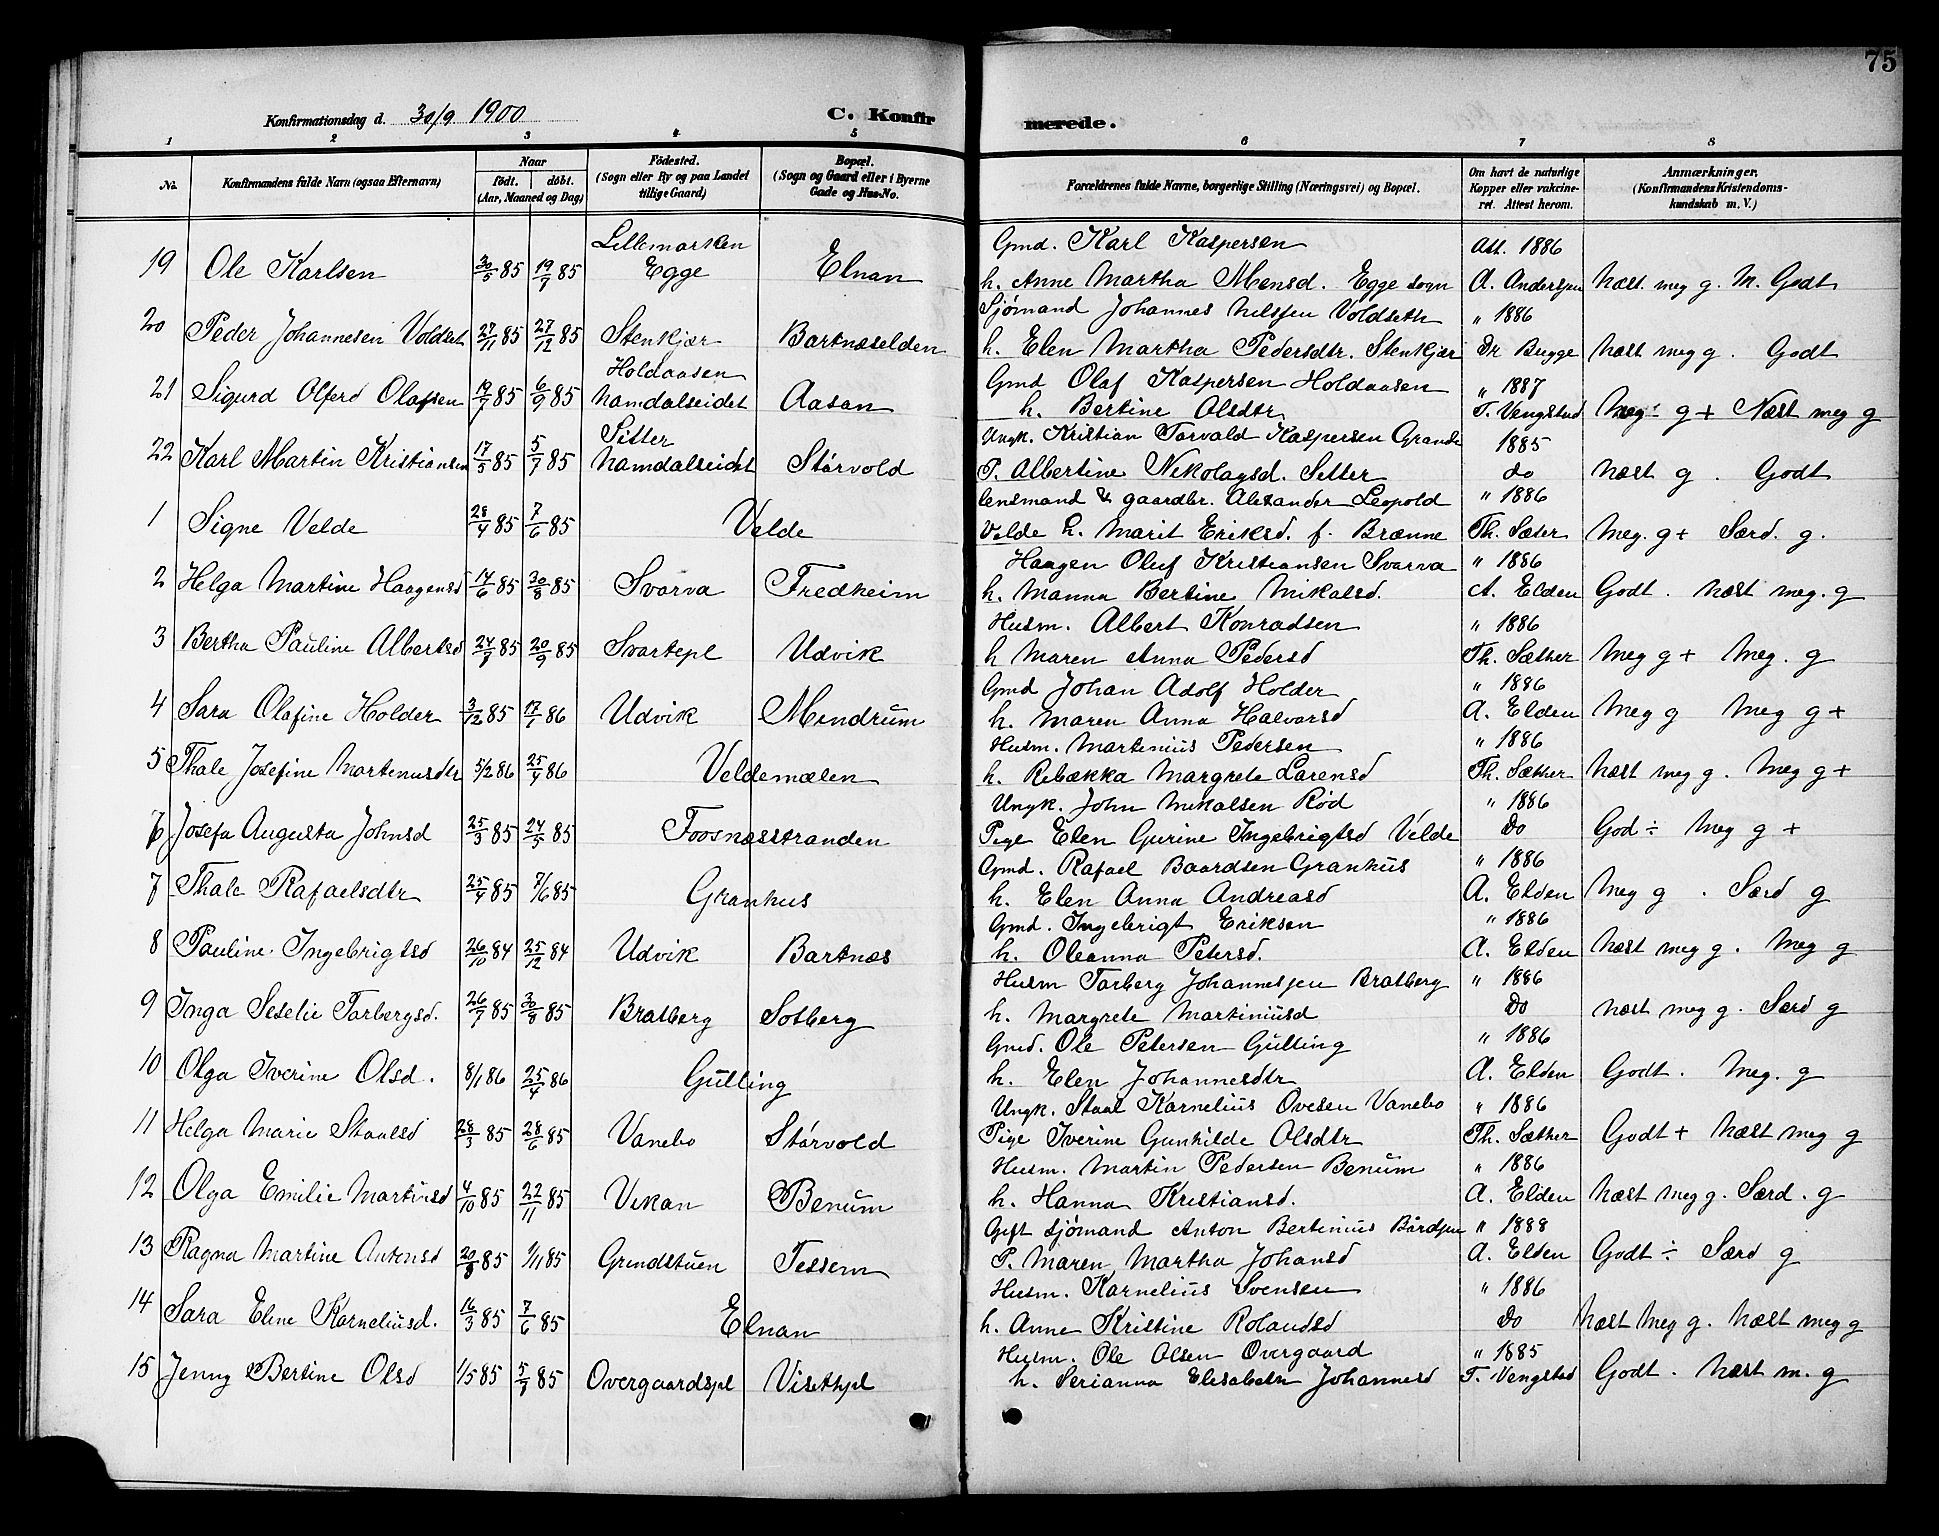 75
Konfirmationsdag d. 30/9 1900 C. Konfirmerede.
1 2 3 4 5 6 7 8
No. Konfirmandens fulde Navn (ogsaa Efternavn) Naar födt. döbt. (Aar, Maaned og Dag) Födested. (Sogn eller By og paa Landet tillige Gaard) Bopæl. (Sogn og Gaard eller i Byerne Gade og Hus-No. Forældrenes fulde Navne, borgerlige Stilling (Næringsvei) og Bopæl. Om havt de naturlige Kopper eller vakcineret. Attest herom. Anmærkninger. (Konfirmandens Kristendomskundskab m. V.)
Lillemarken Gmd. Karl Kaspersen Att. 1886
19 Ole Karlsen 30/5 85 19/7 85 Egge Elnan h. Anne Martha Monsd. Egge sogn A. Andersen Næst meg g. M. Godt
Sjømand Johannes Nilssen Voldseth " 1886
20 Peder Johannesen Voldset 27/11 85 27/12 85 Stenkjær Bartnæselden h. Elen Martha Pedersdtr. Stenkjær Dr Bugge Næst meg g. Godt
Holdaasen Gmd Olaf Kaspersen Holdaasen " 1887
21 Sigurd Alferd Olafsen 19/7 85 6/9 85 Namdalseidet Aasan h. Bertine Olsdtr T. Vengstad Meg g + Næst meg g
Sitter Ungk. Kristian Torvald Kaspersen Grande 1885
22 Karl Martin Kristiansen 17/5 85 5/7 85 Namdalseidet Størvold P. Albertine Nikolaysd. Sitter do Næst g. Godt
Lensmand & gaardbr. Alexander Leopold " 1886
1 Signe Velde 28/4 85 7/6 85 Velde Velde h. Marit Eriksd. f. Brænne Th. Sæter Meg. g + Særd. g.
Haagen Oluf Kristiansen Svarva " 1886
2 Helga Martine Haagensd 14/6 85 30/8 85 Svarva Fredheim h. Manna Bertine Mikalsd. A. Elden Godt. Næst meg. g
Husm. Albert Konradsen " 1886
3 Bertha Pauline Albertsd 24/7 85 20/9 85 Svartepl Udvik h Maren Anna Pedersd Th. Sæther Meg g + Meg. g
Gmd Johan Adolf Holder " 1886
4 Sara Olafine Holder 3/12 85 17/1 86 Udvik Mendrum h. Maren Anna Halvorsd A. Elden Meg g Meg g +
Husm. Martinius Pedersen " 1886
5 Thale Josefine Martenusdtr 5/2 86 25/4 86 Veldemælen h. Rebækka Margrete Larensd Th. Sæther Næst meg g. Meg g +
Ungk. John Mikalsen Rød " 1886
6 Josefa Augusta Johnsd 25/3 85 24/5 85 Foosnæsstranden Pige Elen Gurine Ingebrigtsd Velde Do God ÷ Meg g +
Gmd. Rafael Baardsen Granhus " 1886
7 Thale Rafaelsdtr 25/4 85 7/6 85 Granhus h. Elen Anna Andreasd A. Elden Meg g. Særd g
Gmd. Ingebrigt Eriksen " 1886
8 Pauline Ingebrigtsd 26/10 84 25/12 84 Udvik Bartnæs h. Oleanna Petersd. A. Elden Næst meg g. Meg g
Husm Torberg Johannesen Bratberg " 1886
9 Inga Seselie Torbergsd. 26/7 85 30/8 85 Bratberg Solberg h. Margrete Martiniusd Do Næst meg g. Særd g
Gmd. Ole Petersen Gulling " 1886
10 Olga Iverine Olsd. 8/1 86 25/4 86 Gulling h. Elen Johannesdtr A. Elden Godt. Meg. g
Ungk. Staal Kornelius Ovesen Vanebo " 1886
11 Helga Marie Staalsd 28/3 85 28/6 85 Vanebo Størvold Pige Iverine Gunhilde Olsdtr Th. Sæther Godt + Næst meg g
Husm. Martin Pedersen Benum " 1886
12 Olga Emilie Martinsd 4/10 85 22/11 85 Vikan Benum h. Hanna Kristiansd. A. Elden Næst meg g. Særd. g
Gift sjømand Anton Bertinius Bårdsen " 1888
13 Ragna Martine Antonsd 20/8 85 1/11 85 Grindstuen Tessem P. Maren Martha Johansd A. Elden Godt ÷ Særd g
Husm. Kornelius Svensen " 1886
14 Sara Eline Korneliusd. 16/3 85 7/6 85 Elnan h. Anne Kristine Rolandsd Do Næst Meg g. Næst meg g
Husm. Ole Olsen Overgaard " 1885
15 Jenny Bertine Olsd 1/5 85 5/7 85 Overgaardspl Visethpl h. Serianna Elisabeth Johannesd T. Vengstad Godt. Næst m. g